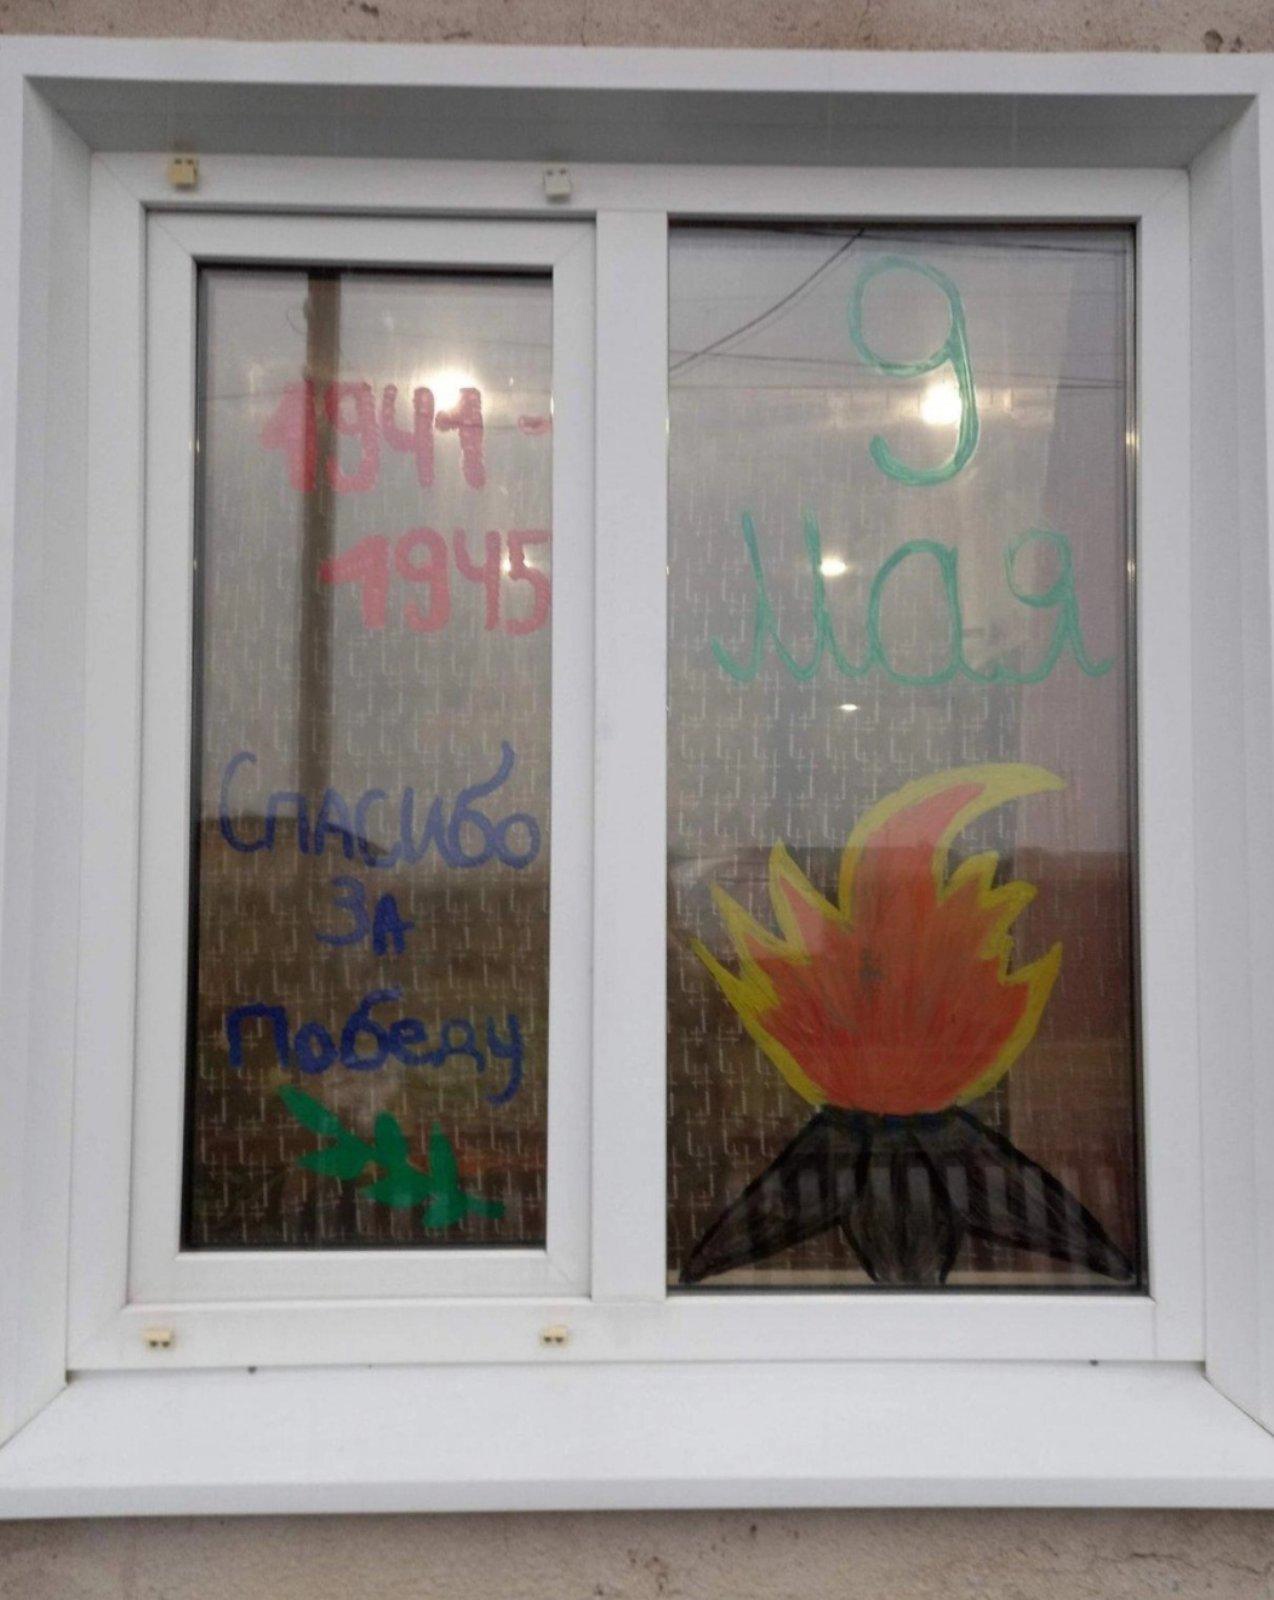 1941-
1945
Спасибо
за
Победу
9
Мая